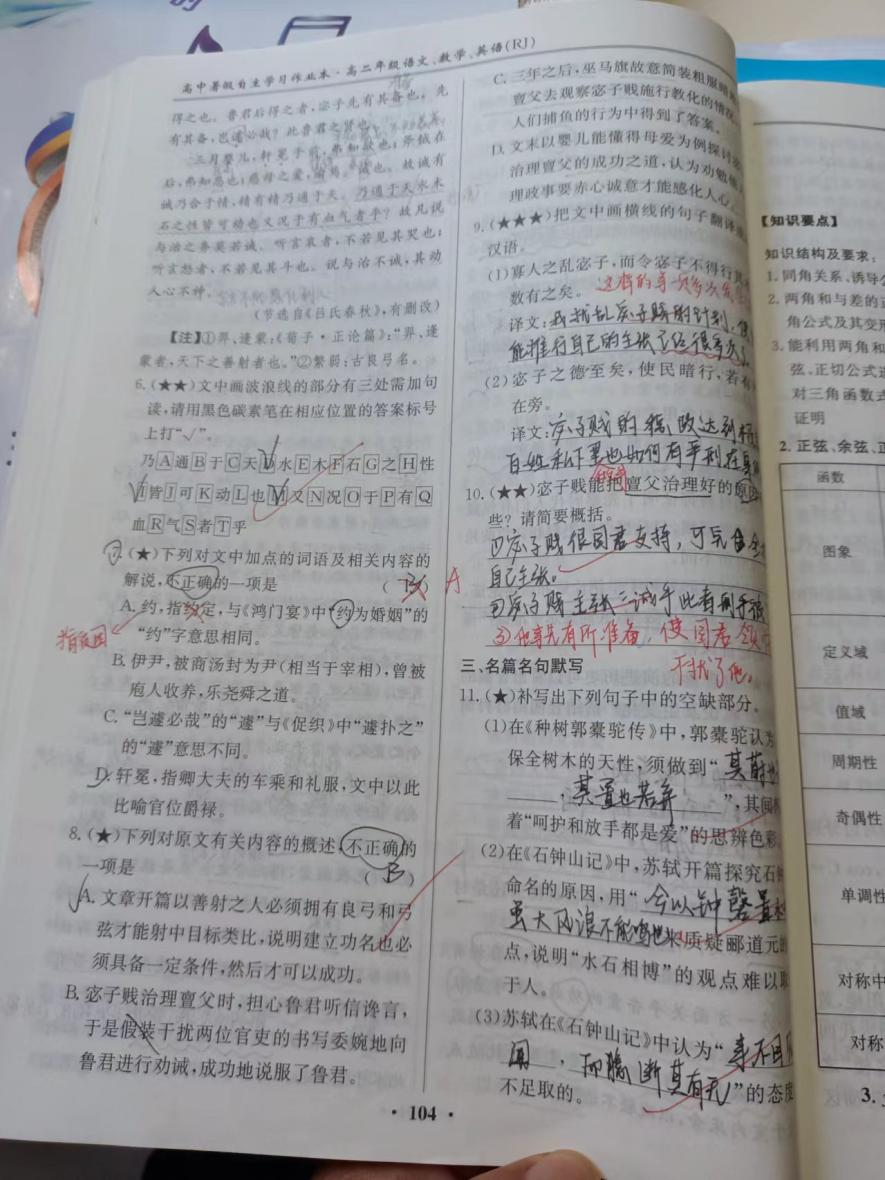 高中暑假自主学习作业本·高二年级语文、数学、英语(RJ)
得之也。鲁君后得之者,宓子先有其备也。先
有其备,岂遽必哉?此鲁君之贤也。
三月婴儿,轩冕在前,弗知欲也;斧钺在
后,弗知恶也;慈母之爱,谕焉。诚也。故诚有
诚乃合于情,精有精乃通于天。乃通于天水木
石之性皆可动也又况于有血气者乎?故凡说
与治之务莫若诚。听言哀者,不若见其哭也;
听言怒者,不若见其斗也。说与治不诚,其动
人心不神。
(节选自《吕氏春秋》,有删改)
【注】①羿、逢蒙:《荀子·正论篇》:“羿、逢
蒙者,天下之善射者也。”②繁弱:古良弓名。
6.(★★)文中画波浪线的部分有三处需加句
读,请用黑色碳素笔在相应位置的答案标号
上打“√”。
乃A通B于C天D水E木F石G之H性
I皆J可K动L也M又N况O于P有Q
血R气S者T乎
7.(★)下列对文中加点的词语及相关内容的
解说,不正确的一项是 (B) A
A.约,指约定,与《鸿门宴》中“约为婚姻”的
“约”字意思相同。
B.伊尹,被商汤封为尹(相当于宰相),曾被
庖人收养,乐尧舜之道。
C.“岂遽必哉”的“遽”与《促织》中“遽扑之”
的“遽”意思不同。
D.轩冕,指卿大夫的车乘和礼服,文中以此
比喻官位爵禄。
8.(★)下列对原文有关内容的概述,不正确的
一项是 (B)
A.文章开篇以善射之人必须拥有良弓和弓
弦才能射中目标类比,说明建立功名也必
须具备一定条件,然后才可以成功。
B.宓子贱治理亶父时,担心鲁君听信谗言,
于是假装干扰两位官吏的书写委婉地向
鲁君进行劝诫,成功地说服了鲁君。
C.三年之后,巫马旗故意简装粗服
亶父去观察宓子贱施行教化的情况
人们捕鱼的行为中得到了答案。
D.文末以婴儿能懂得母爱为例探讨
治理亶父的成功之道,认为劝勉
理政事要赤心诚意才能感化人心
9.(★★★)把文中画横线的句子翻译
汉语。
(1)寡人之乱宓子,而令宓子不得行其
数有之矣。 这样的事
译文:我扰乱宓子贱的计划,使
能推行自己的主张
(2)宓子之德至矣,使民暗行,若有
在旁。
译文:宓子贱的 政达到
百姓私下里也如何有严刑在身
10.(★★)宓子贱能把亶父治理好的原因
些?请简要概括。
①宓子贱很国君支持,可完全
自己主张。
②宓子贱主张“诚乎此者刑乎彼
③他事先有所准备,使国君
干扰了他。
三、名篇名句默写
11.(★)补写出下列句子中的空缺部分。
(1)在《种树郭橐驼传》中,郭橐驼认为
保全树木的天性,须做到“其莳也
,其置也若弃”,其间
着“呵护和放手都是爱”的思辨色彩
(2)在《石钟山记》中,苏轼开篇探究石钟
命名的原因,用“今以钟磬置
虽大风浪不能鸣也”来质疑郦道元的
点,说明“水石相博”的观点难以取
于人。
(3)苏轼在《石钟山记》中认为“事不目
闻,而臆断其有无”的态度
不足取的。
· 104 ·
【知识要点】
知识结构及要求:
1.同角关系、诱导公
2.两角和与差的正
角公式及其变形
3.能利用两角和
弦、正切公式进
对三角函数式
证明
2.正弦、余弦、正
函数
图象
定义域
值域
周期性
奇偶性
单调性
对称中
对称
3.